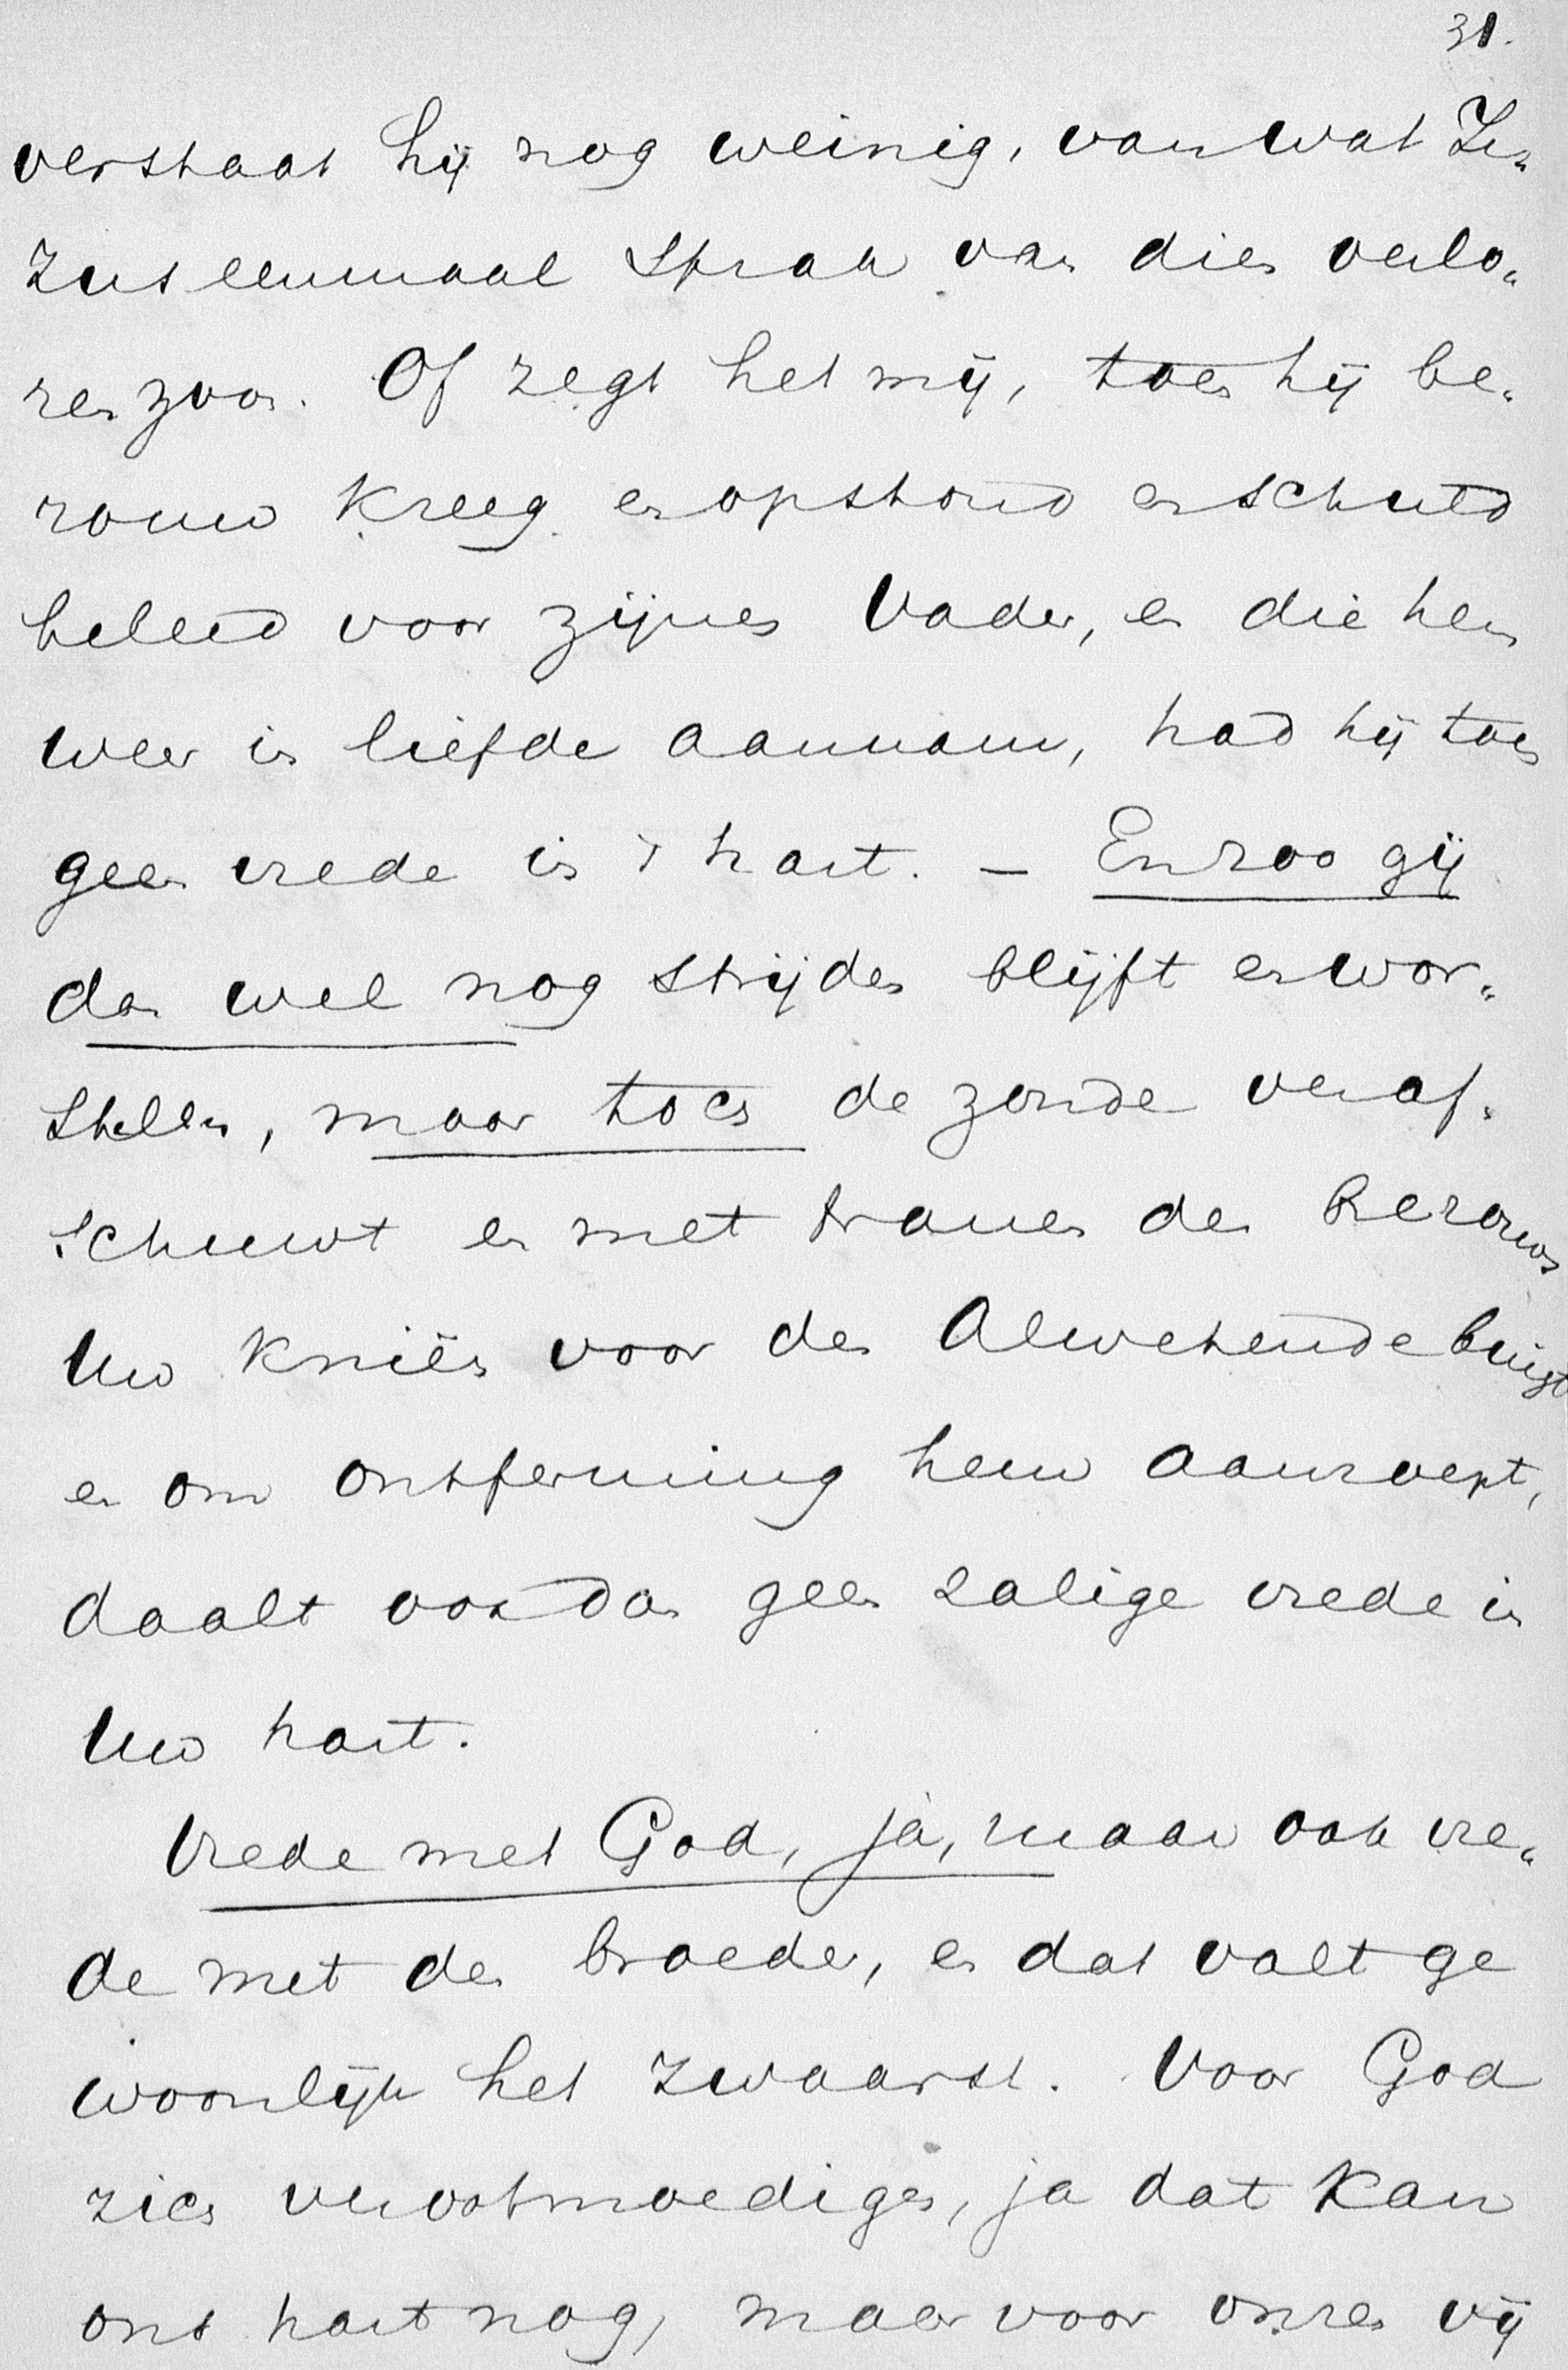 31.
verstaat hij nog weinig, van wat Je„
zus eenmaal sprak van dien verlo„
ren zoon. Of zegt het mij, toen hij be„
rouw kreeg en opstond en schuld
beleed voor zijnen Vader, en die hem
weer in liefde aannam, had hij toen
geen vrede in 't hart. – En zoo gij
dan wel nog strijden blijft en wor„
stelen, maar toch de zonde veraf„
schuwt en met tranen des berouws
Uw knieën voor den Alwetende buigt
en om ontferming hem aanroept,
daalt ook dan geen zalige vrede in
Uw hart.
Vrede met God, ja, maar ook vre„
de met den broeder, en dat valt ge
woonlijk het zwaarst. Voor God
zich verootmoedigen, ja dat kan
ons hart nog, maar voor onzen vij